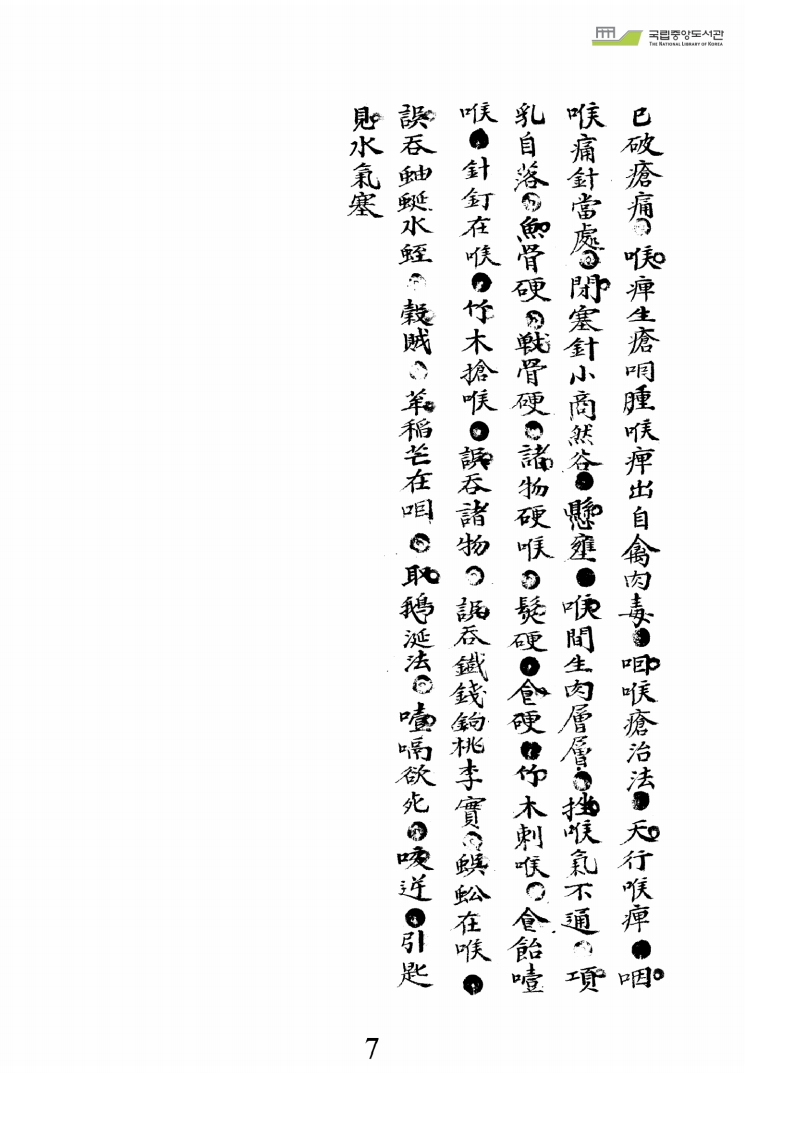 국립중앙도서관
THE NATIONAL LIBRARY OF KOREA
已破瘡痛○喉痺生瘡咽腫喉痺出自禽肉毒●咽喉瘡治法●天行喉痺●咽
喉痛針當處○閉塞針小商然谷●懸壅●喉間生肉層層○挫喉氣不通○項
乳自落○魚骨硬○戟骨硬○諸物硬喉○髮硬●食硬●竹木刺喉○食飴噎
喉●針釘在喉●竹木搶喉●誤吞諸物○誤吞鐵錢鉤桃李實○蜈蚣在喉●
誤吞蚰蜒水蛭○穀賊○羊稻芒在咽●取鵝涎法○噎嗝欲死●咳逆●引匙
見水氣塞
7